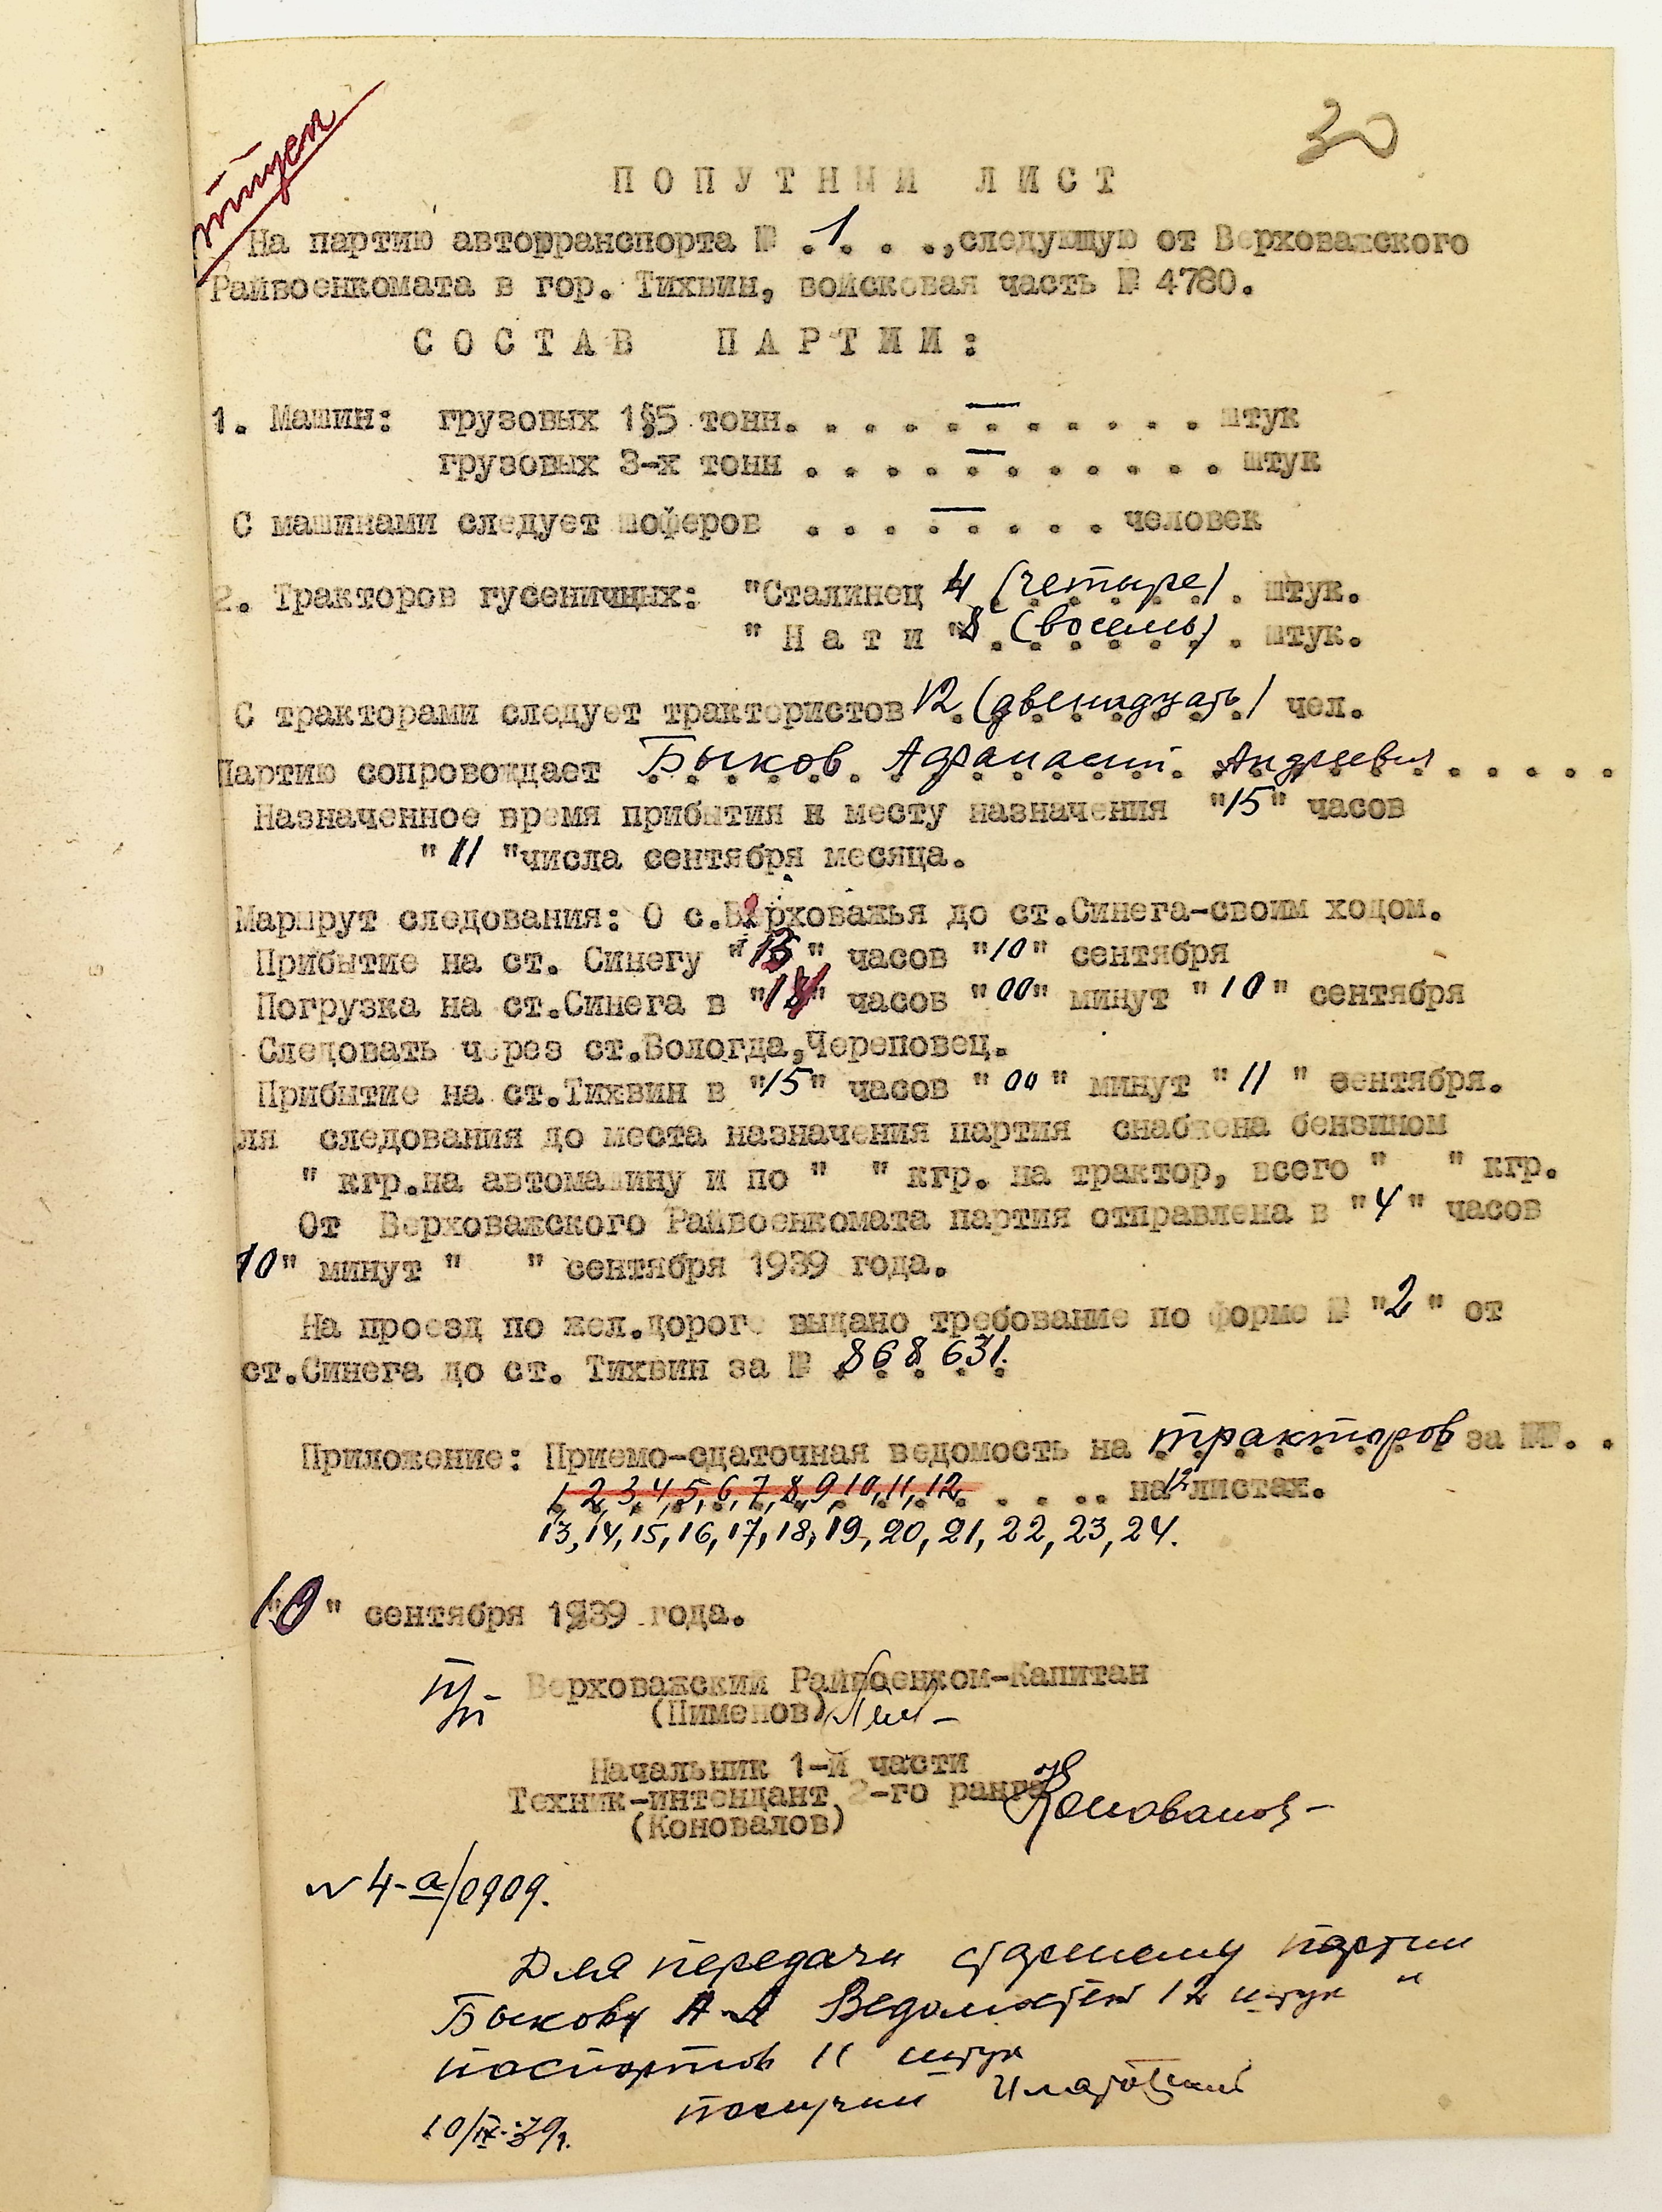 30
ПОПУТНЫЙ ЛИСТ
На партию авторранспорта № 1. . . .,следующую от Верховажского
Райвоенкомата в гор. Тихвин, войсковая часть № 4780.
СОСТАВ ПАРТИИ:
1. Машин: грузовых 1,5 тонн. . . . . — . . . . . . штук
грузовых 3-х тонн . . . . . — . . . . . . штук
С машинами следует шоферов . . . — . . . . . человек
2. Тракторов гусеничных: "Сталинец 4 (четыре) . штук.
" Н а т и " 8 (восемь) . штук.
С тракторами следует трактористов 12 (двенадцать) чел.
Партию сопровождает Быков Афанасий Андреевич . . . . .
Назначенное время прибытия к месту назначения "15" часов
" 11 "числа сентября месяца.
Маршрут следования: О с.Верховажья до ст.Синега-своим ходом.
Прибытие на ст. Синегу " " часов "10" сентября
Погрузка на ст.Синега в " " часов "00" минут "10" сентября
Следовать через ст.Вологда,Череповец.
Прибытие на ст.Тихвин в "15" часов "00" минут "11" сентября.
ля следования до места назначения партия снабжена бензином
" кгр.на автомашину и по " " кгр. на трактор, всего " " кгр.
От Верховажского Райвоенкомата партия отправлена в "4" часов
10" минут " " сентября 1939 года.
На проезд по жел.дороге выдано требование по форме № "2" от
ст.Синега до ст. Тихвин за № 868631.
Приложение: Приемо-сдаточная ведомость на тракторов за №№. .
1, 2, 3, 4, 5, 6, 7, 8, 9, 10, 11, 12. . . . .. на 12 листах.
13, 14, 15, 16, 17, 18, 19, 20, 21, 22, 23, 24.
"10" сентября 1939 года.
п/п Верховажский Райвоенком-Капитан
(Пименов)
Начальник 1-й части
Техник-интендант 2-го ранга
(Коновалов) Коновалов
№ 4-а/0909.
Для передачи старшему партии
Быкову А А Ведомостей 12 штук "
паспортов 11 штук
получил
10/IX-39г.